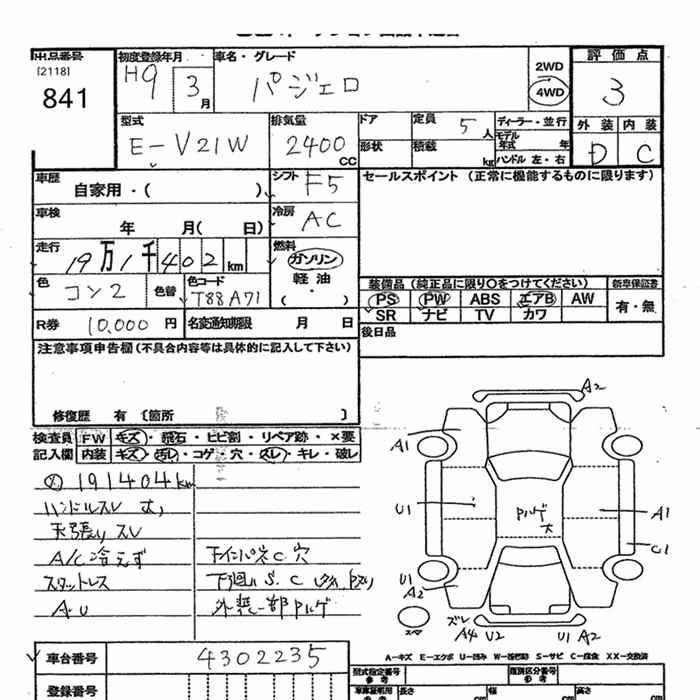 出品番号
[2118]
841
初度登録年月
H9 3月
車名・グレード
パジェロ
2WD
4WD
評価点
3
外装 内装
D C
型式
E-V21W
排気量
2400 CC
ドア
定員 5 人
形状
積載 kg
ディーラー・並行
モデル年式 年
ハンドル 左・右
車歴
自家用・( )
シフト F5
セールスポイント (正常に機能するものに限ります)
車検
年 月( 日)
冷房 AC
走行
19万1千402km
燃料
ガソリン
軽油
( ・ )
色
コン2
色替
色コード
T88A71
装備品 (純正品に限り○をつけてください)
新車保証書
PS PW ABS エアB AW
SR ナビ TV カワ
有・無
R券 10,000 円
名変通知期限 月 日
後日品
注意事項申告欄(不具合内容等は具体的に記入して下さい)
修復歴 有 [箇所 ]
検査員 FW キズ・飛石・ヒビ割・リペア跡・×要
記入欄 内装 キズ・汚レ・コゲ・穴・スレ・キレ・破レ
191404km
ハンドルスレ
天張りスレ
A/C冷えず
スタットレス
下廻りS.C
外装一部Pハゲ
A2
A1
U1
Pハゲ
大
A1
C1
U1
A2
スペア
ズレ
A4 U2
U1 A2
A-キズ E-エクボ U-凹み W-板金跡 S-サビ C-腐食 XX-交換済
車台番号
4302235
登録番号
型式指定番号
参考
類別区分番号
参考
長さ cm
幅 cm
高さ cm